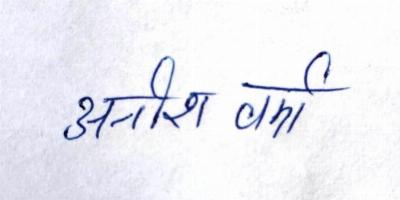 अनीश वर्मा